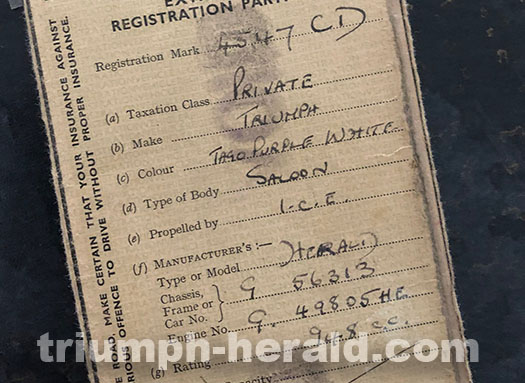 REGISTRATION PARTI
Registration Mark 4547 CD
(a) Taxation Class PRIVATE
(b) Make TRIUMPH
(c) Colour TAGO PURPLE WHITE
(d) Type of Body SALOON
(e) Propelled by I.C.E.
(f) MANUFACTURER'S:—
Type or Model HERALD
Chassis, Frame or Car No. G 56313
Engine No. G. 49805 HE
(g) Rating 948 cc.
Capacity
ROAD MAKE CERTAIN THAT YOUR INSURANCE AGAINST
OFFENCE TO DRIVE WITHOUT PROPER INSURANCE.
triumph-herald.com